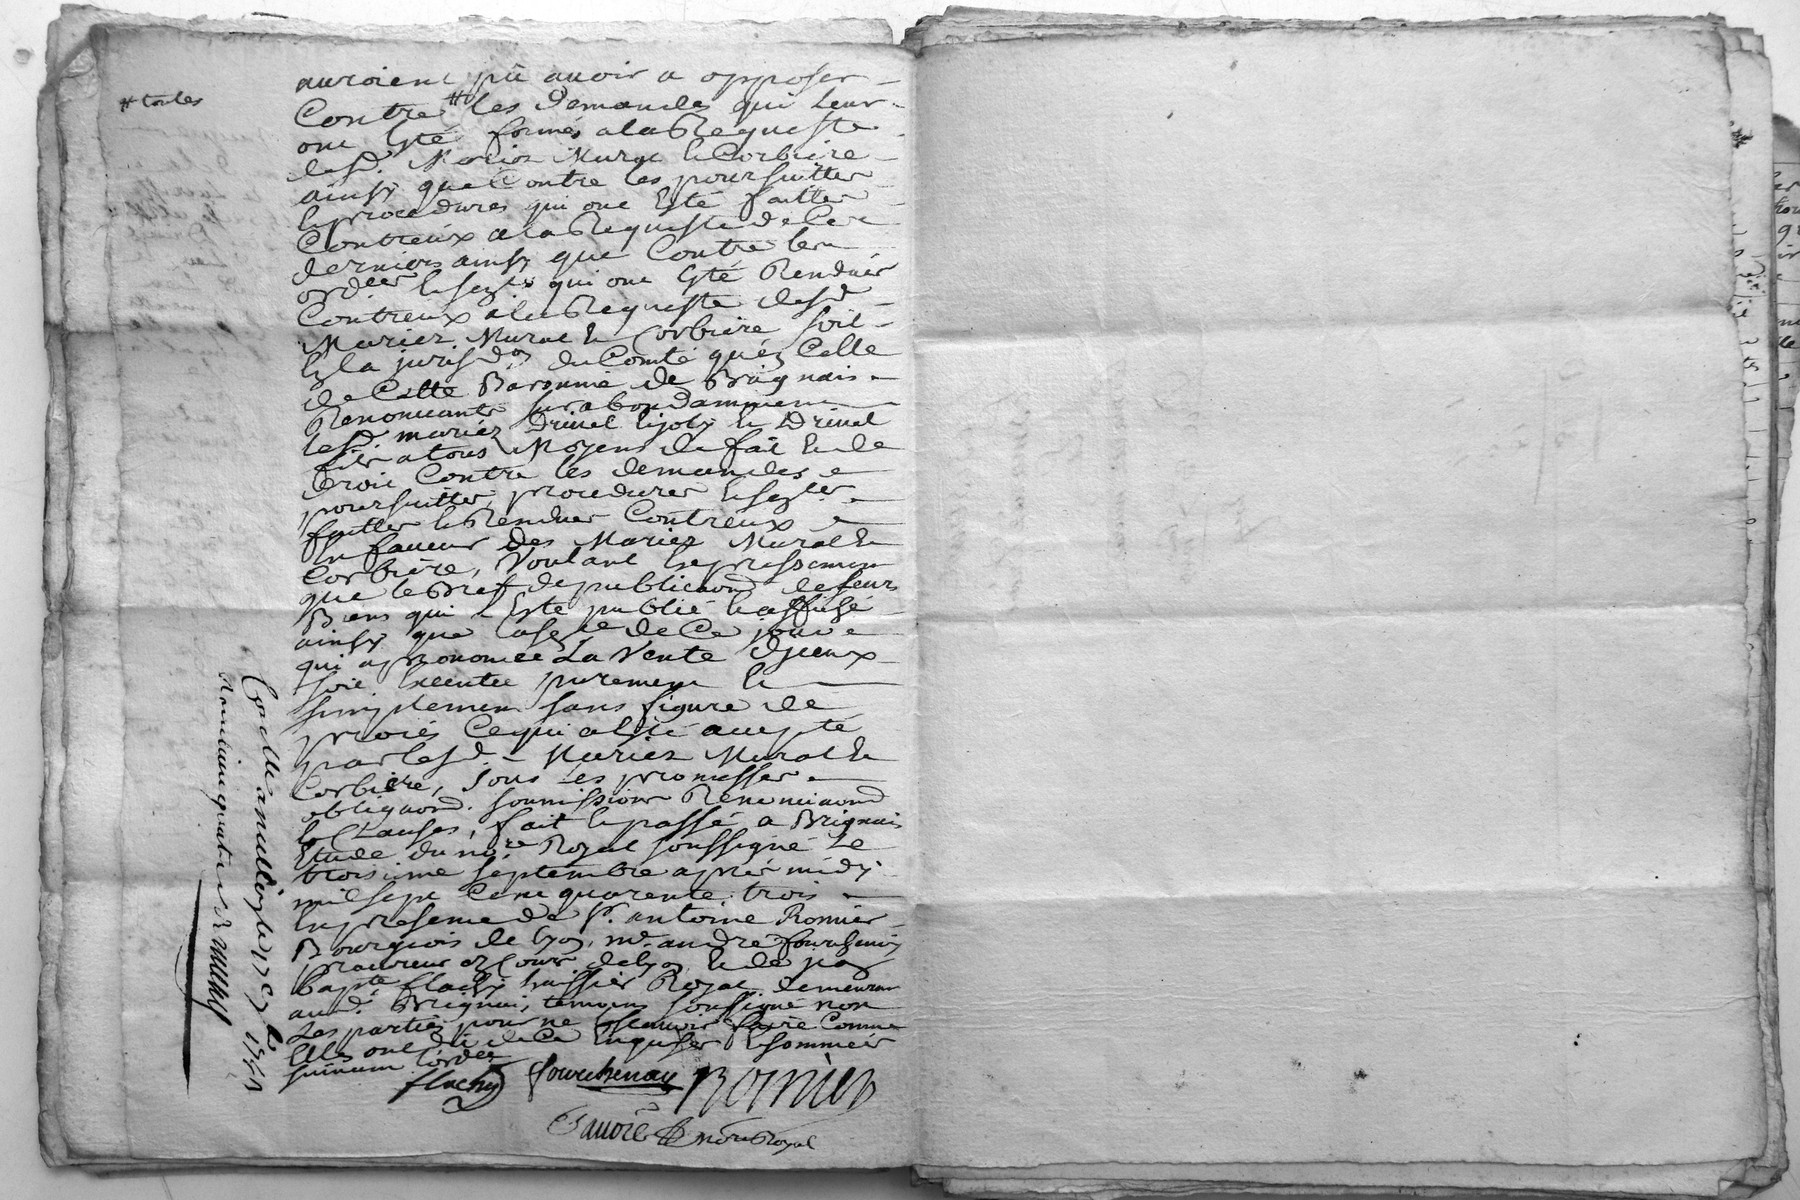 # toutes
auroient pû auoir a opposer
Contre # les demandes qui leur
ont Esté formés a la Requeste
desd. Mariez Murat & Corbiere
ainsy que Contre les poursuittes
& procedures qui ont Esté faittes
Contreux a la Requeste de Ces
derniers ainsy que Contre les
ordces & sentces qui ont Esté Rendues
Contreux a la Requeste desd.
Mariez Murat & Corbiere soit
En la jurisdon du Comté qu'en Celle
de Cette Baronnie de Brignais
Renonceants surabondamment
lesd. mariez Drivet & joly & Drivet
fils a tous Moyens de fait & de
Droit Contre les demandes
poursuittes, procedures & sentces
faittes & Rendues Contreux
En faueur des Mariez Murat &
Corbiere, Voulant Expressement
que le Bref de publicaons de leurs
Biens qui a Esté publié & affiché
ainsy que la sentce de Ce jour
qui a prononcée La Vente d'jceux
soit Executée purement &
simplement sans figure de
procés Ce qui a Esté accepté
par lesd. Mariez Murat &
Corbiere, sous les promesses
obligaons. soumissions Renonciaons
& Clauses, fait & passé a Brignais
Etude du nore Royal soussigné Le
troisieme septembre aprés midy
mil sept Cent quarente trois
En presence de sr. antoine Romier
Bourgeois de Lyon, me. andré fourchenay
procureur Ez Cours de Lyon & de jean
Bapte flachy huissier Royal demeurant
aud. Brignais, temoins soussigné non
Les parties pour ne sçauoir faire Comme
Elles ont dit de Ce Enquises & sommées
suivant L'ordce
flachy fourchenay Romier
Sauoie nore Royal
Conllé a